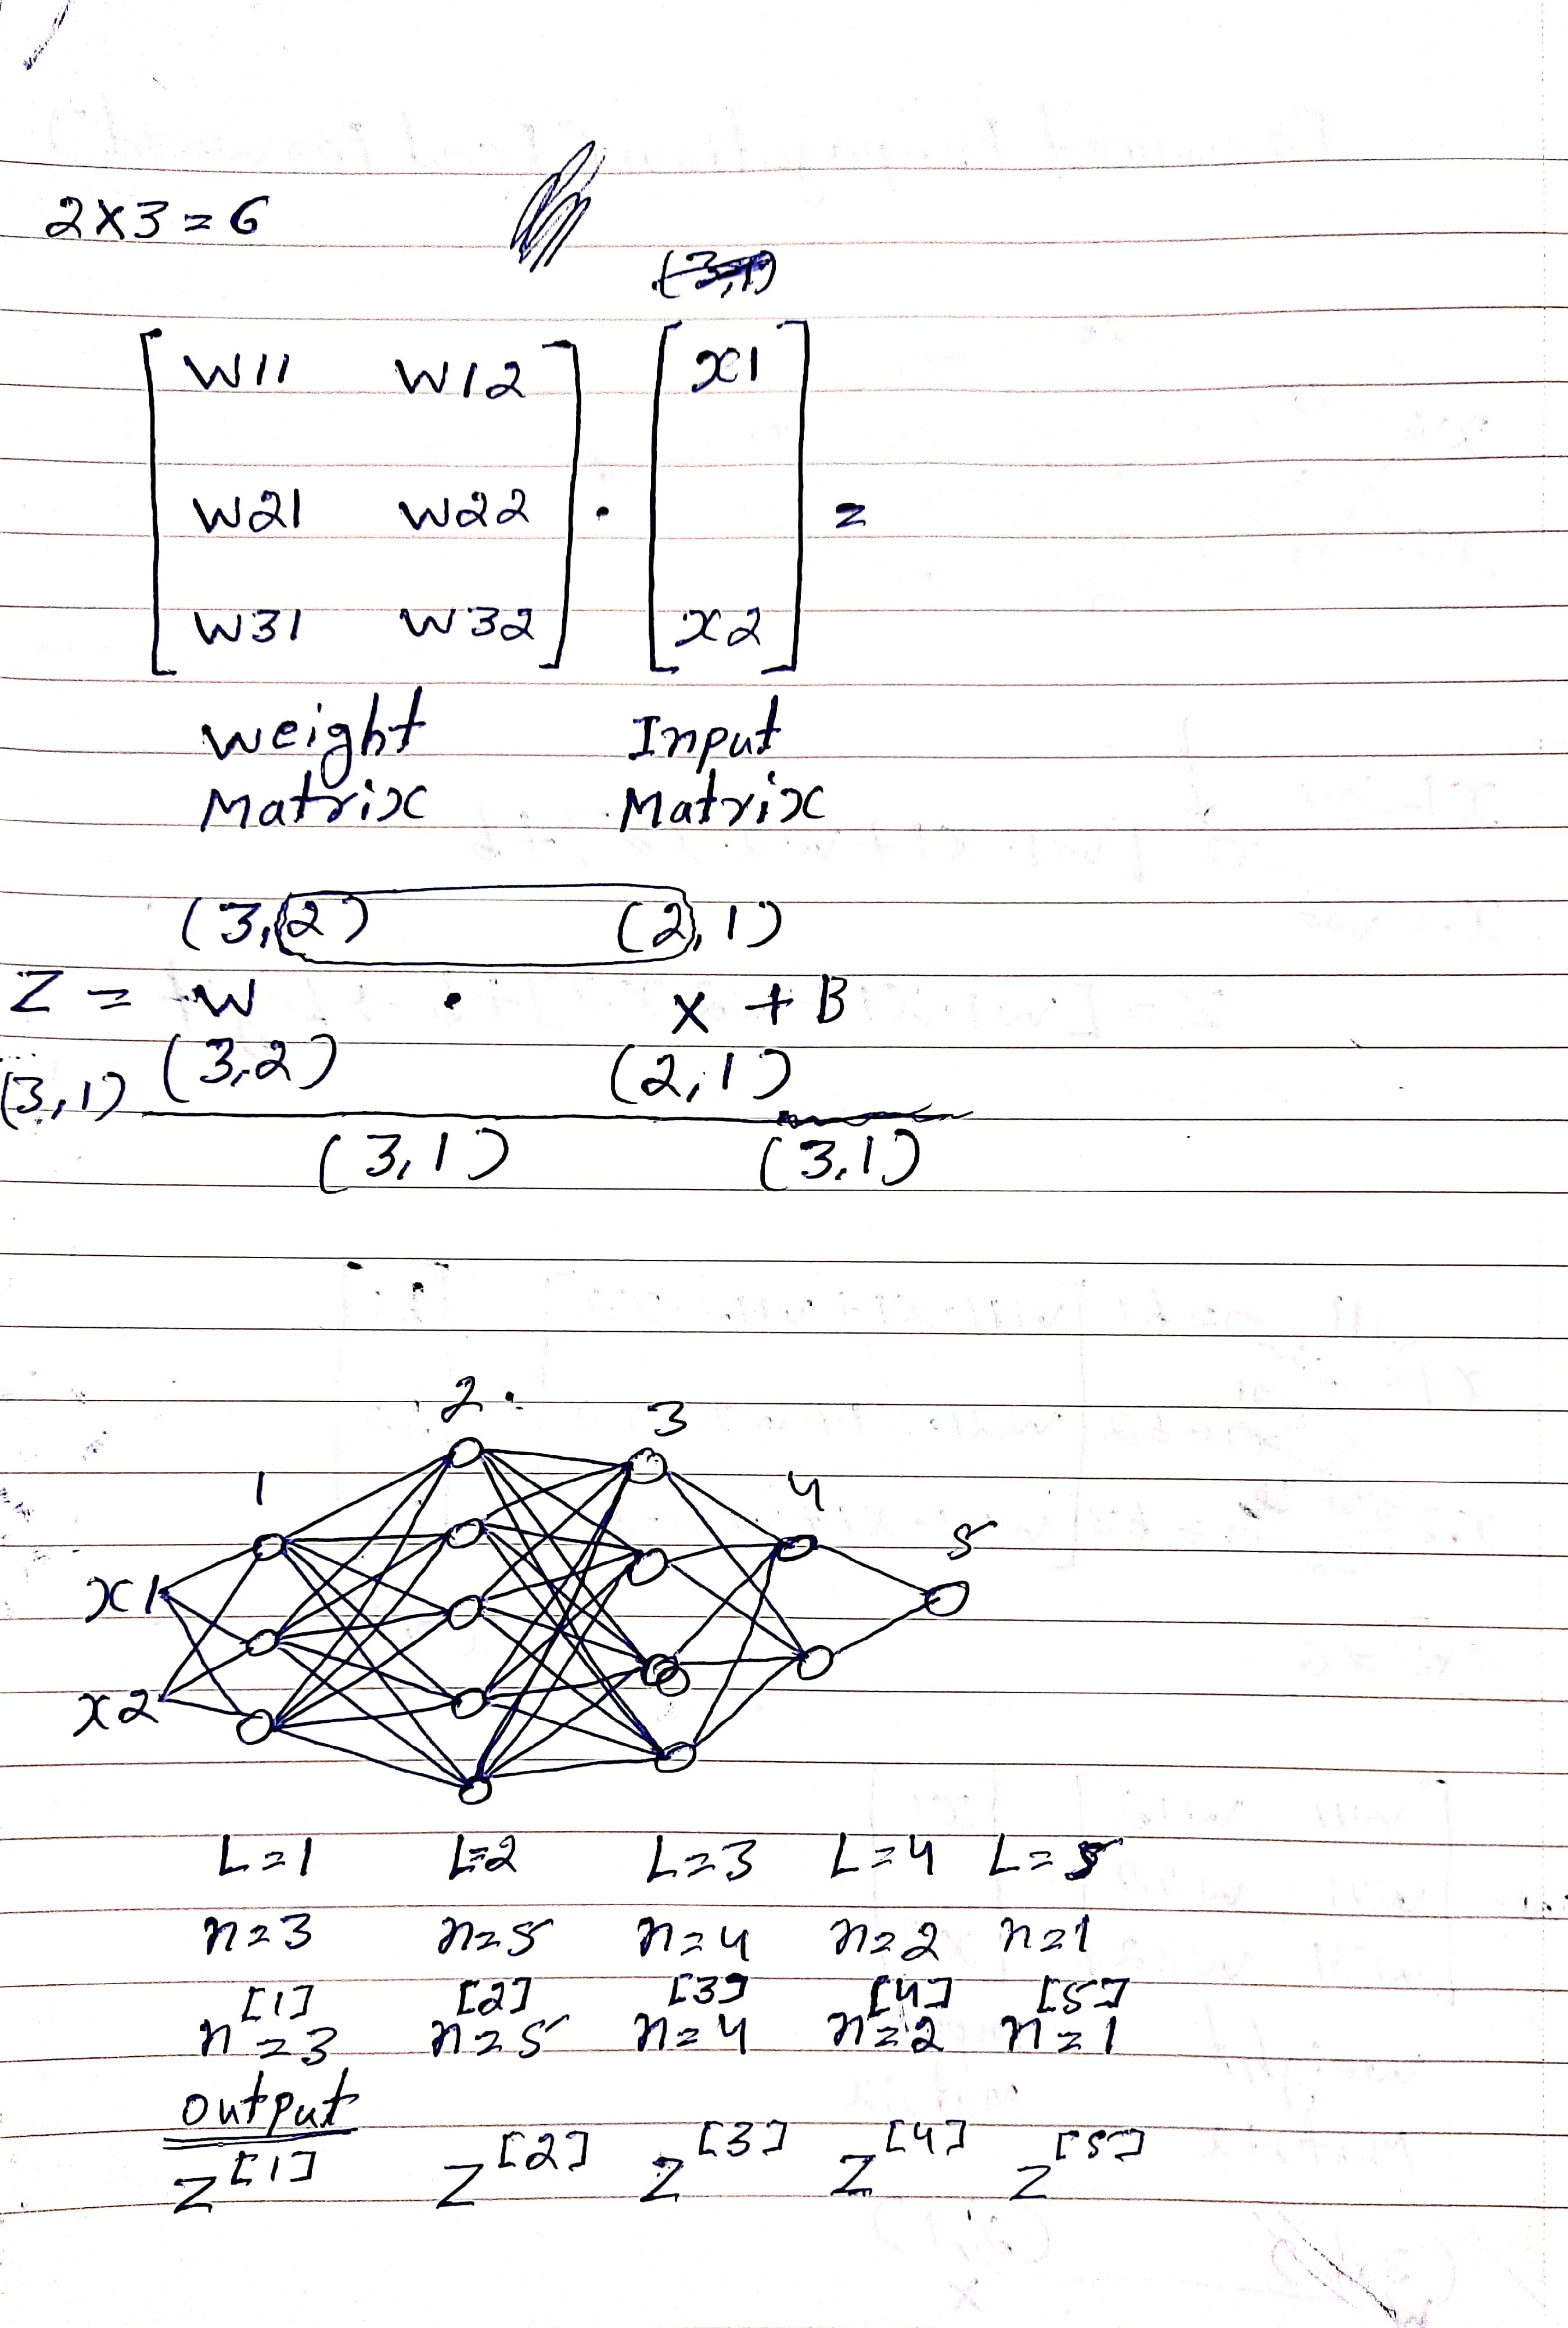 2×3=6
(3,1)
W11 W12 x1
W21 W22 . =
W31 W32 x2
Weight Input
Matrix Matrix
(3,2) (2,1)
Z = W . X + B
(3,1) (3,2) (2,1)
(3,1) (3,1)
2 3
1 4
5
x1
x2
L=1 L=2 L=3 L=4 L=5
n=3 n=5 n=4 n=2 n=1
[1] [2] [3] [4] [5]
n=3 n=5 n=4 n=2 n=1
output
Z[1] Z[2] Z[3] Z[4] Z[5]